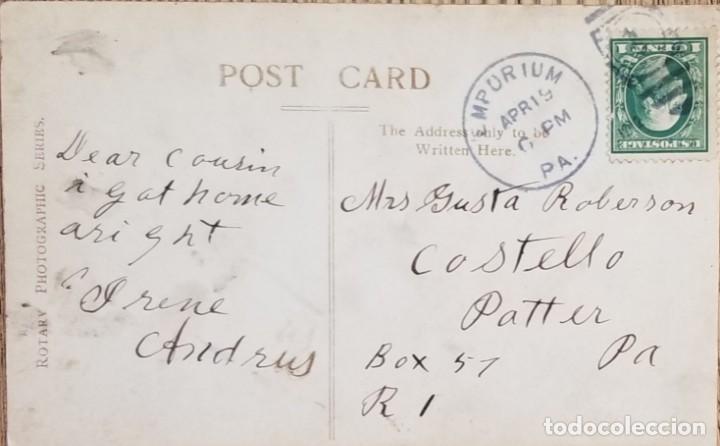 POST CARD
ROTARY PHOTOGRAPHIC SERIES.
The Address only to be
Written Here.
EMPORIUM
APR 19
6 PM
PA.
1 CENT 1
U.S. POSTAGE
Dear Cousin
i got home
aright
Irene
Andrus
Mrs Gusta Roberson
Costello
Patter
Pa
Box 57
R 1
todocoleccion